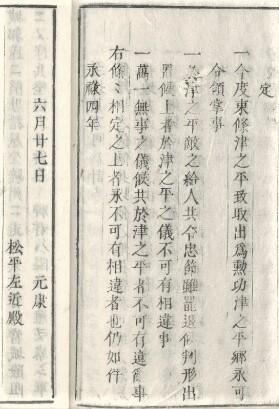 定
一今度東條津之平致取出爲勲功津之平郷永可
令領掌事
一 津之平敵之給人共令忠節雖罷退候判形出
置候上者於津之平之儀不可有相違事
一萬一無事之儀候共於津之平者不可有違事
右條々相定之上者永不可有相違者也仍如件
永祿四年
六月廿七日
元康
松平左近殿